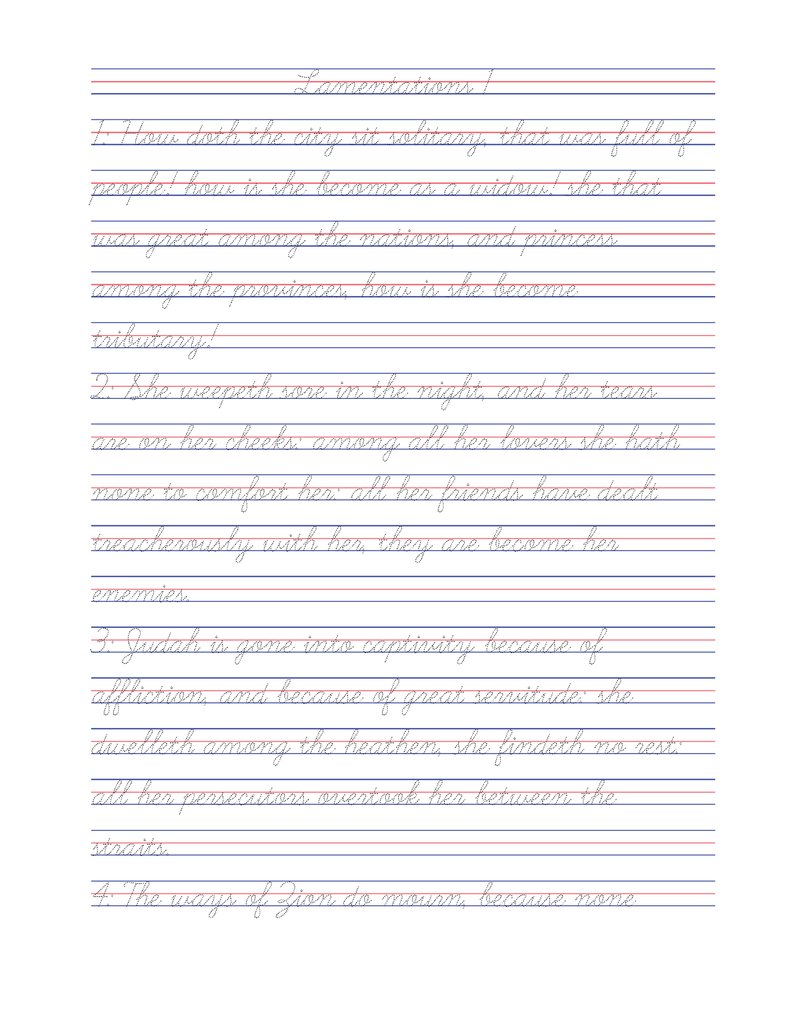 Lamentations 1
1: How doth the city sit solitary, that was full of
people! how is she become as a widow! she that
was great among the nations, and princess
among the provinces, how is she become
tributary!
2: She weepeth sore in the night, and her tears
are on her cheeks: among all her lovers she hath
none to comfort her: all her friends have dealt
treacherously with her, they are become her
enemies.
3: Judah is gone into captivity because of
affliction, and because of great servitude: she
dwelleth among the heathen, she findeth no rest:
all her persecutors overtook her between the
straits.
4: The ways of Zion do mourn, because none